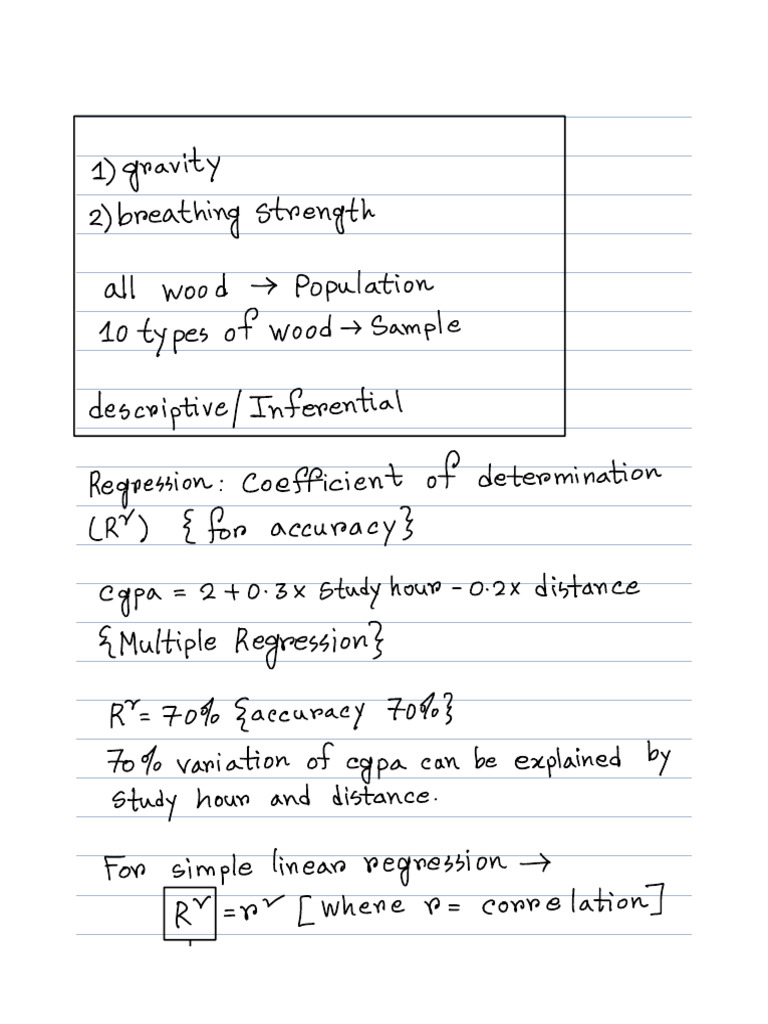 1) gravity
2) breathing strength
all wood → Population
10 types of wood → Sample
descriptive / Inferential
Regression: Coefficient of determination
(R²) {for accuracy}
cgpa = 2 + 0.3 x study hour - 0.2 x distance
{Multiple Regression}
R² = 70% {accuracy 70%}
70% variation of cgpa can be explained by
study hour and distance.
For simple linear regression →
R² = r² [where r = correlation]